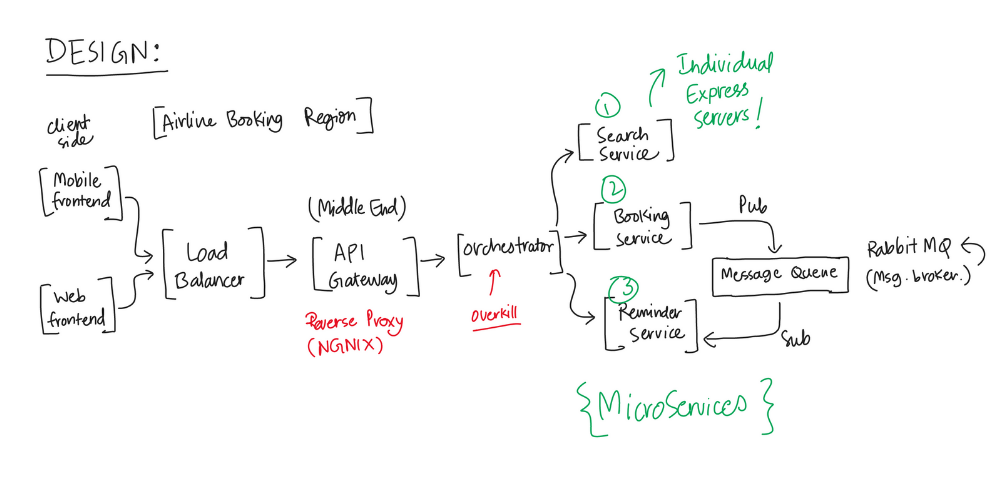 DESIGN:
client
side
[Airline Booking Region]
Mobile
frontend
Web
frontend
Load
Balancer
(Middle End)
API
Gateway
Reverse Proxy
(NGNIX)
Orchestrator
overkill
1
Search
Service
Individual
Express
servers!
2
Booking
Service
3
Reminder
Service
Pub
Message Queue
Sub
Rabbit MQ
(Msg. broker.)
{MicroServices}